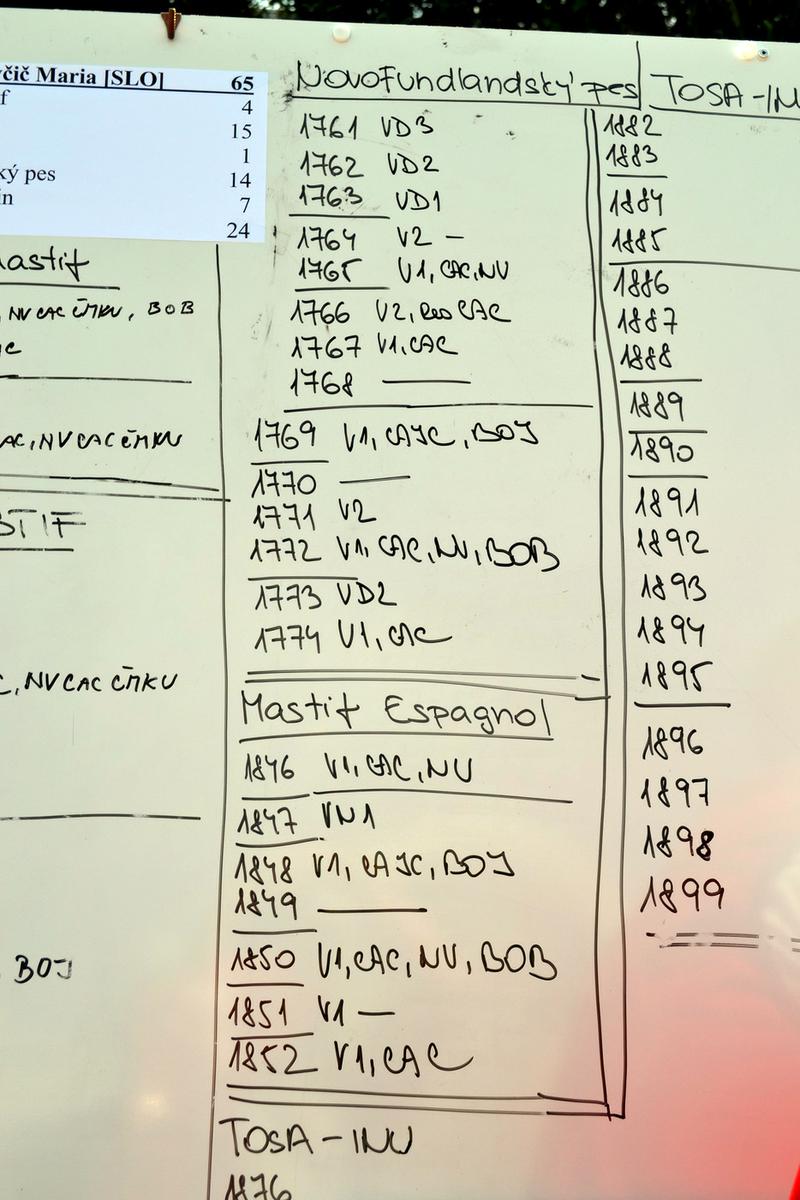 čič Maria [SLO] 65
f 4
15
1
ký pes 14
in 7
24
astif
, NV CAC ČMKU, BOB
AC, NV CAC ČMKU
STIF
C, NV CAC ČMKU
BOJ
Novofundlandský pes
1761 VD3
1762 VD2
1763 VD1
1764 V2 –
1765 V1, CAC, NV
1766 V2, Res CAC
1767 V1, CAC
1768 —
1769 V1, CAJC, BOJ
1770 —
1771 V2
1772 V1, CAC, NV, BOB
1773 VD2
1774 V1, CAC
Mastif Espagnol
1846 V1, CAC, NV
1847 VN1
1848 V1, CAJC, BOJ
1849 —
1850 V1, CAC, NV, BOB
1851 V1 —
1852 V1, CAC
TOSA-INU
1876
TOSA-IN
1882
1883
1884
1885
1886
1887
1888
1889
1890
1891
1892
1893
1894
1895
1896
1897
1898
1899